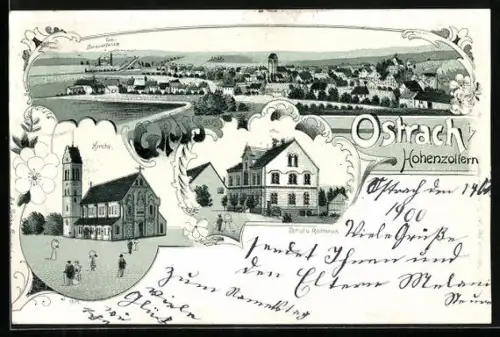 Ostrach
Hohenzollern
Kirche.
Schul u. Rathaus
Ostrach den
1900
Viele Grüße
sendet Ihnen und
den Eltern Melani
Zum Namenstag
viele
Glück